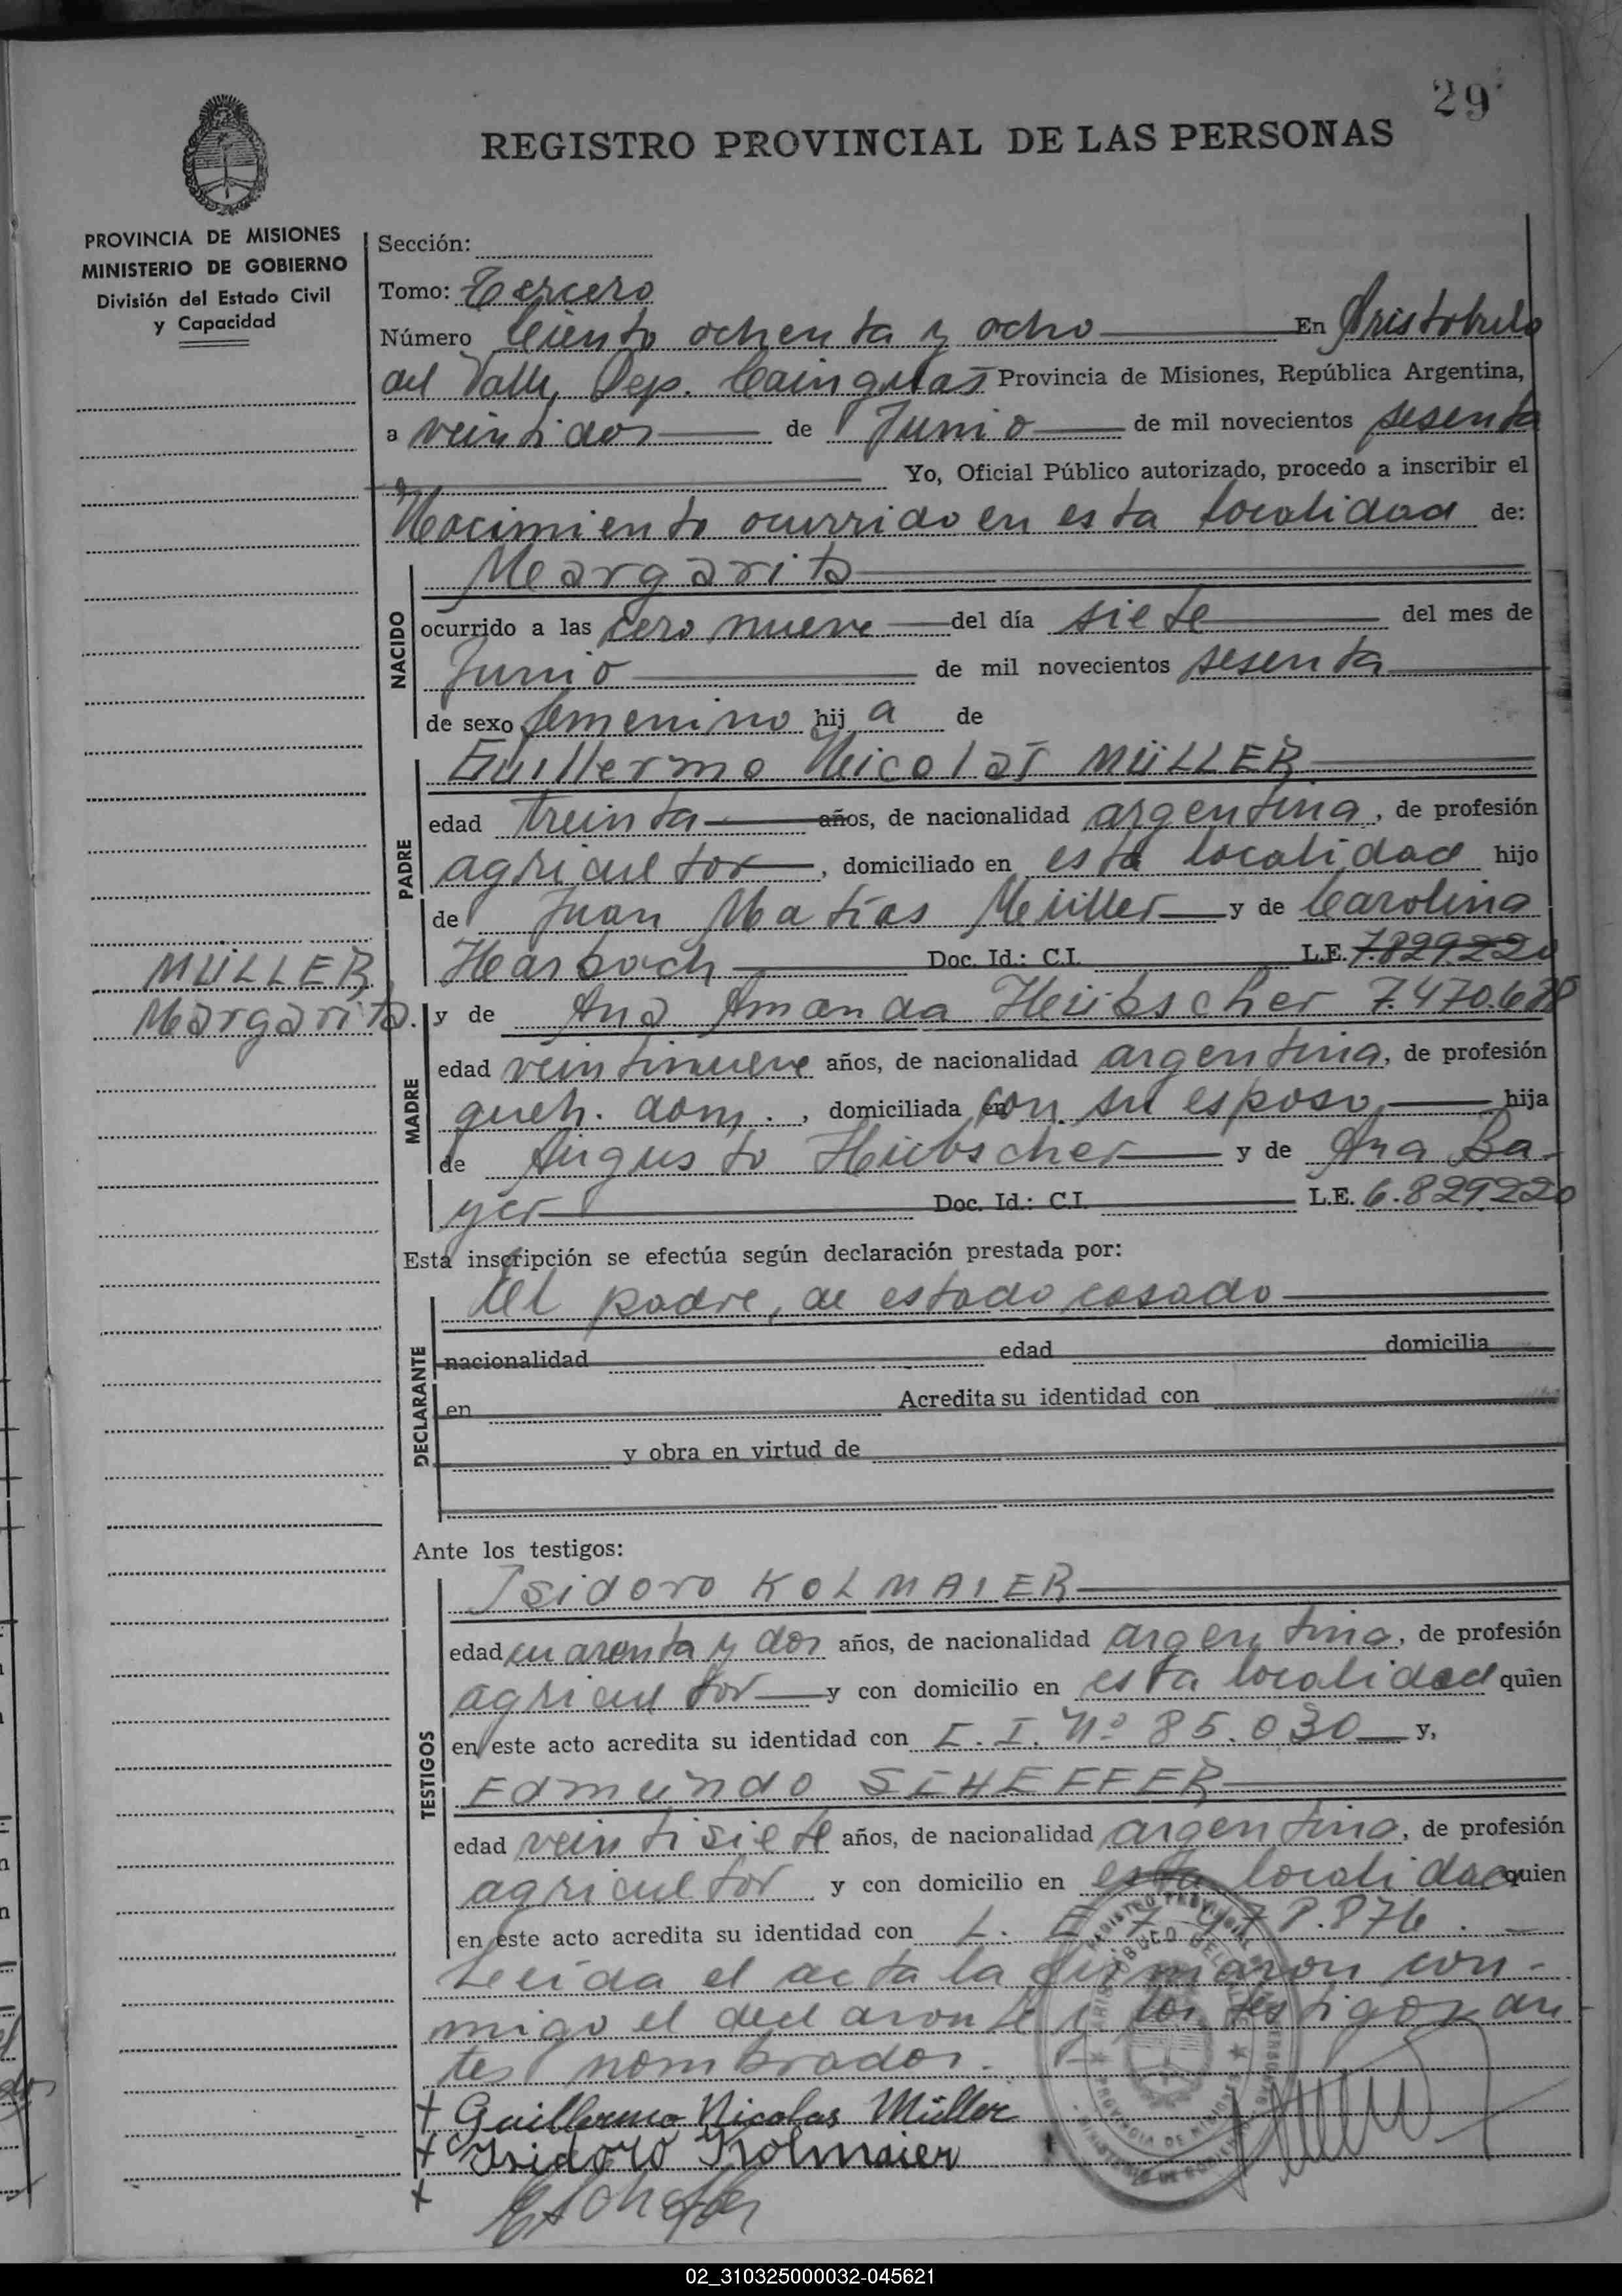 29
REGISTRO PROVINCIAL DE LAS PERSONAS
PROVINCIA DE MISIONES
MINISTERIO DE GOBIERNO
División del Estado Civil
y Capacidad
MÜLLER
Margarita.
Sección:
Tomo: Tercero
Número Ciento ochenta y ocho En Aristobulo
del Valle, Dep. Cainguas Provincia de Misiones, República Argentina,
a veintidos de Junio de mil novecientos sesenta
Yo, Oficial Público autorizado, procedo a inscribir el
Nacimiento ocurrido en esta localidad de:
NACIDO
Margarita
ocurrido a las cero nueve del día siete del mes de
Junio de mil novecientos sesenta
de sexo femenino hij a de
PADRE
Guillermo Nicolás MÜLLER
edad treinta años, de nacionalidad argentina, de profesión
agricultor, domiciliado en esta localidad hijo
de Juan Matías Müller y de Carolina
Harbach Doc. Id.: C.I. L.E. 7.829220
MADRE
y de Ana Amanda Hübscher 7.470.678
edad veintinueve años, de nacionalidad argentina, de profesión
queh. dom., domiciliada en con su esposo, hija
de Augusto Hübscher y de Ana Ba-
yer Doc. Id.: C.I. L.E. 6.829220
Esta inscripción se efectúa según declaración prestada por:
DECLARANTE
El padre, de estado casado
nacionalidad edad domicilia
en Acredita su identidad con
y obra en virtud de
Ante los testigos:
TESTIGOS
Isidoro KOLMAIER
edad cuarenta y dos años, de nacionalidad argentina, de profesión
agricultor y con domicilio en esta localidad quien
en este acto acredita su identidad con C.I. Nº 85.030 y,
Edmundo SCHEFFER
edad veintisiete años, de nacionalidad argentina, de profesión
agricultor y con domicilio en esta localidad quien
en este acto acredita su identidad con L. E 7.478.876.
Leída el acta la firmaron con-
migo el declarante y los testigos an-
tes nombrados.
+ Guillermo Nicolas Müller
+ Isidoro Kolmaier
+
02_310325000032-045621